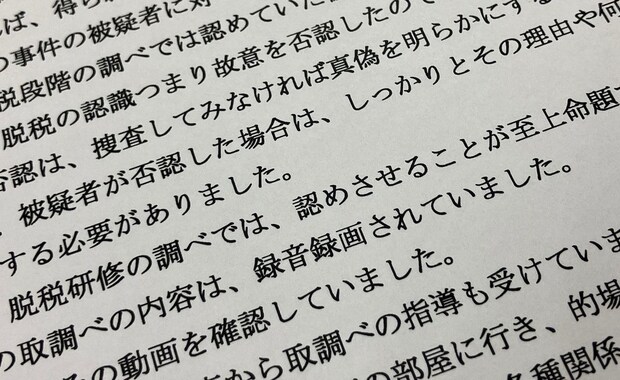 ば、得ら
の事件の被疑者に対
税段階の調べでは認めていた
脱税の認識つまり故意を否認したので
否認は、捜査してみなければ真偽を明らかにする
被疑者が否認した場合は、しっかりとその理由や何
する必要がありました。
脱税研修の調べでは、認めさせることが至上命題で
の取調べの内容は、録音録画されていました。
の動画を確認していました。
から取調べの指導も受けていま
の部屋に行き、的場
各種関係